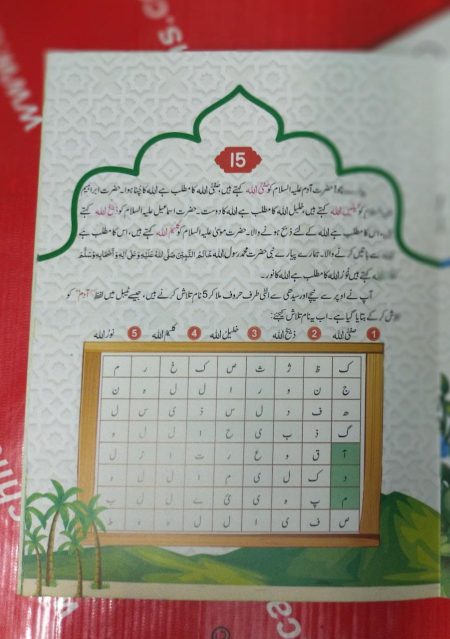 15
حضرت آدم علیہ السلام کو صفیُّ اللہ کہتے ہیں، صفیُّ اللہ کا مطلب ہے اللہ کا چُنا ہوا۔ حضرت ابراہیم
السلام کو خلیل اللہ کہتے ہیں، خلیل اللہ کا مطلب ہے اللہ کا دوست۔ حضرت اسماعیل علیہ السلام کو ذَبِیحُ اللہ کہتے
اس کا مطلب ہے اللہ کے لئے ذبح ہونے والا۔ حضرت موسیٰ علیہ السلام کو کلیم اللہ کہتے ہیں، اس کا مطلب ہے
سے باتیں کرنے والا۔ ہمارے پیارے نبی حضرت محمد رسول اللہ خَاتَمُ النَّبِیّٖن صَلَّی اللہُ عَلَیْہِ وَعَلٰی اٰلِہٖ وَاَصْحَابِہٖ وَسَلَّمَ
کہتے ہیں نُوْرُ اللہ کا مطلب ہے اللہ کا نور۔
آپ نے اوپر سے نیچے اور سیدھی سے الٹی طرف حروف ملا کر 5 نام تلاش کرنے ہیں، جیسے ٹیبل میں لفظ ”آدم“ کو
تلاش کر کے بتایا گیا ہے۔ اب یہ نام تلاش کیجئے:
1 صفیُّ اللہ 2 ذبیحُ اللہ 3 خلیلُ اللہ 4 کلیمُ اللہ 5 نورُ اللہ
ک ظ ژ ث ص ک خ ر م
ج ن و ر ا ل ل ہ ن
ھ ف د ل س ذ ی س ل
گ ذ ب ی ح ا ل ل ہ
آ ق و ع ر ت ا ژ ل
د ک ل ی م ا ل ل ہ
م پ ہ ی ئ ے ل ل ب
ص ف ی ا ل ل ہ